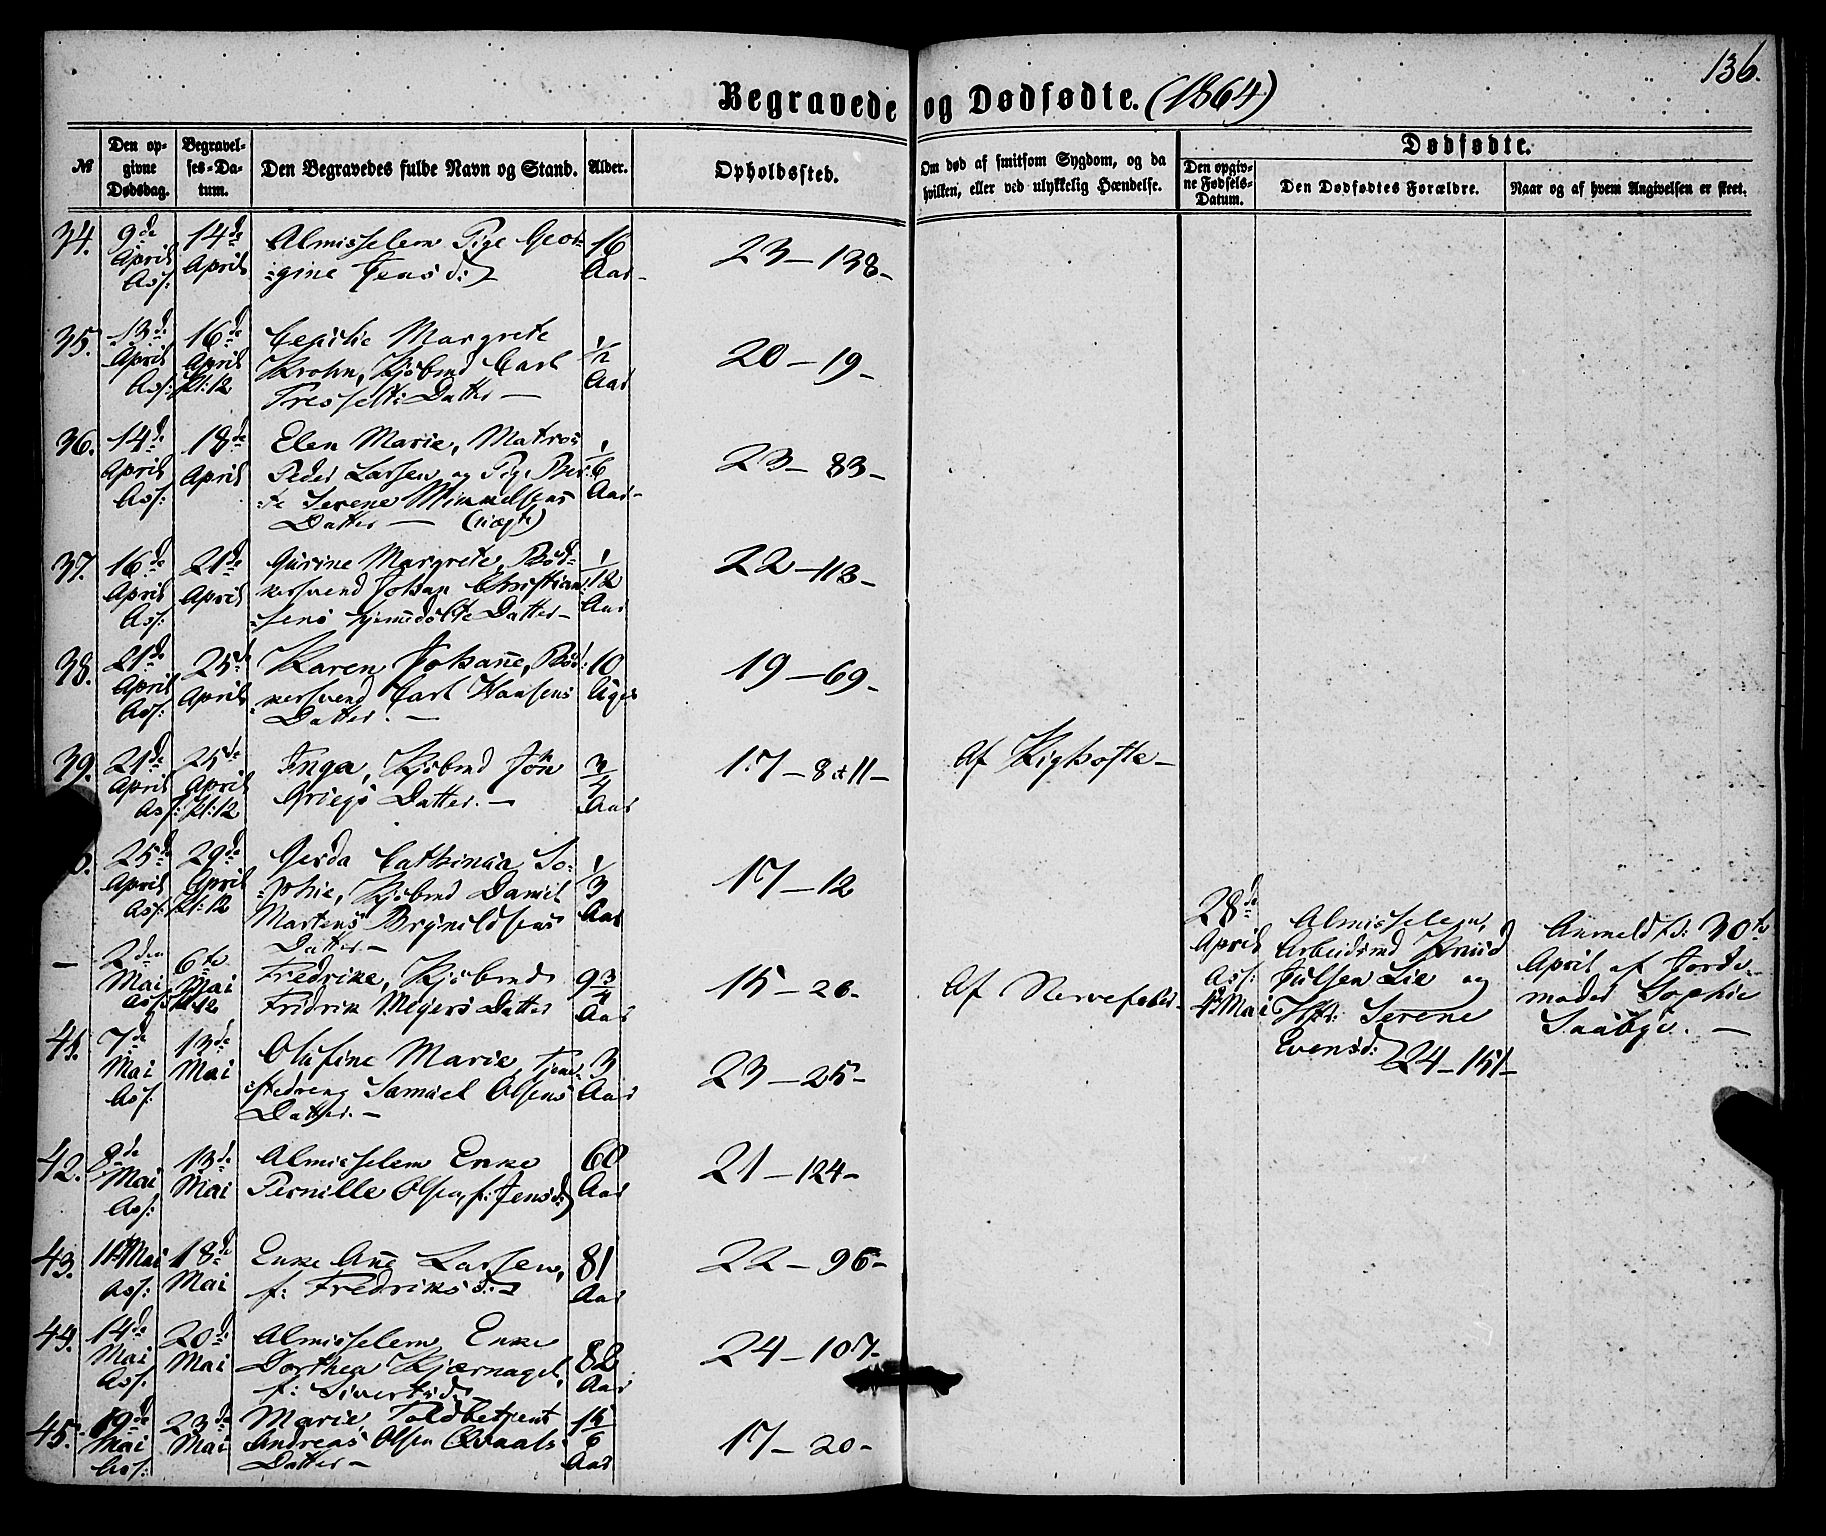 136.
Begravede og Dødfødte. (1864)
№
Den op-
givne
Dødsdag.
Begravel-
ses-Da-
tum.
Den Begravedes fulde Navn og Stand.
Alder.
Opholdssted.
Om død af smitsom Sygdom, og da
hvilken, eller ved ulykkelig Hændelse.
Dødfødte.
Den opgiv-
ne Fødsels-
Datum.
Den Dødfødtes Forældre.
Naar og af hvem Angivelsen er skeet.
34. 9de April Ass: 14de April
Almisselem Pige Geor-
gine Jensd:
16 Aar
23 – 138 –
35. 13de April Ass: 16de April Kl: 12
Cecilie Margrete
Krohn, Kjøbmd Carl
Datter —
1/2 Aar
20 – 19 –
36. 14de April Ass: 18de April
Elen Marie, Matros
Peder Larsen og Pige Ber-
te Serene Mikkelsens
Datter — (uægte)
1/6 Aar
23 – 83 –
37. 16de April Ass: 21de April
Gurine Margrete, Bød-
kersvend Johan Christian-
sens hjemmedøbte Datter –
1/12 Aar
22 – 113 –
38. 21de April Ass: 25de April
Karen Johanne, Bød-
kersvend Carl Hansens
Datter. —
10 Uger
19 – 69 –
39. 21de April Ass: 25de April Kl: 12
Inga, Kjøbmd Jōn
Griegs Datter. —
3/4 Aar
17 – 8 & 11 –
Af Kighoste –
25de April Ass: 29de April Kl: 12
Gerda Cathinca So-
phie, Kjøbmd Daniel
Martens Brynildsens
Datter –
1/3 Aar
17 – 12
28de April Ass: 4de Mai
Almisselem,
Arbeidsmd Knud
Julsen Lie og
Hstr: Serene
Evensd: 24 – 151 –
Anmeldt d: 30te
April af Jorde-
moder Sophie
Saabye. —
— 2den Mai Ass: 6te Mai Kl: 12
Fredrike, Kjøbmd
Fridrik Meyers Datter
9 3/4 Aar
15 – 20 –
Af Nervefeber –
41. 7de Mai Ass: 13de Mai
Olufine Marie, Tjene-
stedreng Samuel Olsens
Datter. —
3 Aar
23 – 25 –
42. 8de Mai Ass: 13de Mai
Almisselem Enke
Pernille Olsen, f: Jensd:
60 Aar
21 – 124 –
43. 11te Mai Ass: 18de Mai
Enke Ane Larsen,
f: Fredriksd: –
81 Aar
22 – 96 –
44. 14de Mai Ass: 20de Mai
Almisselem Enke
Dorthea Kjærnagel,
f: Sivertsd:
82 Aar
24 – 107 –
45. 19de Mai Ass: 23de Mai
Marie, Toldbetjent
Andreas Olsen Qvaals
Datter –
15/6 Aar
17 – 20 –